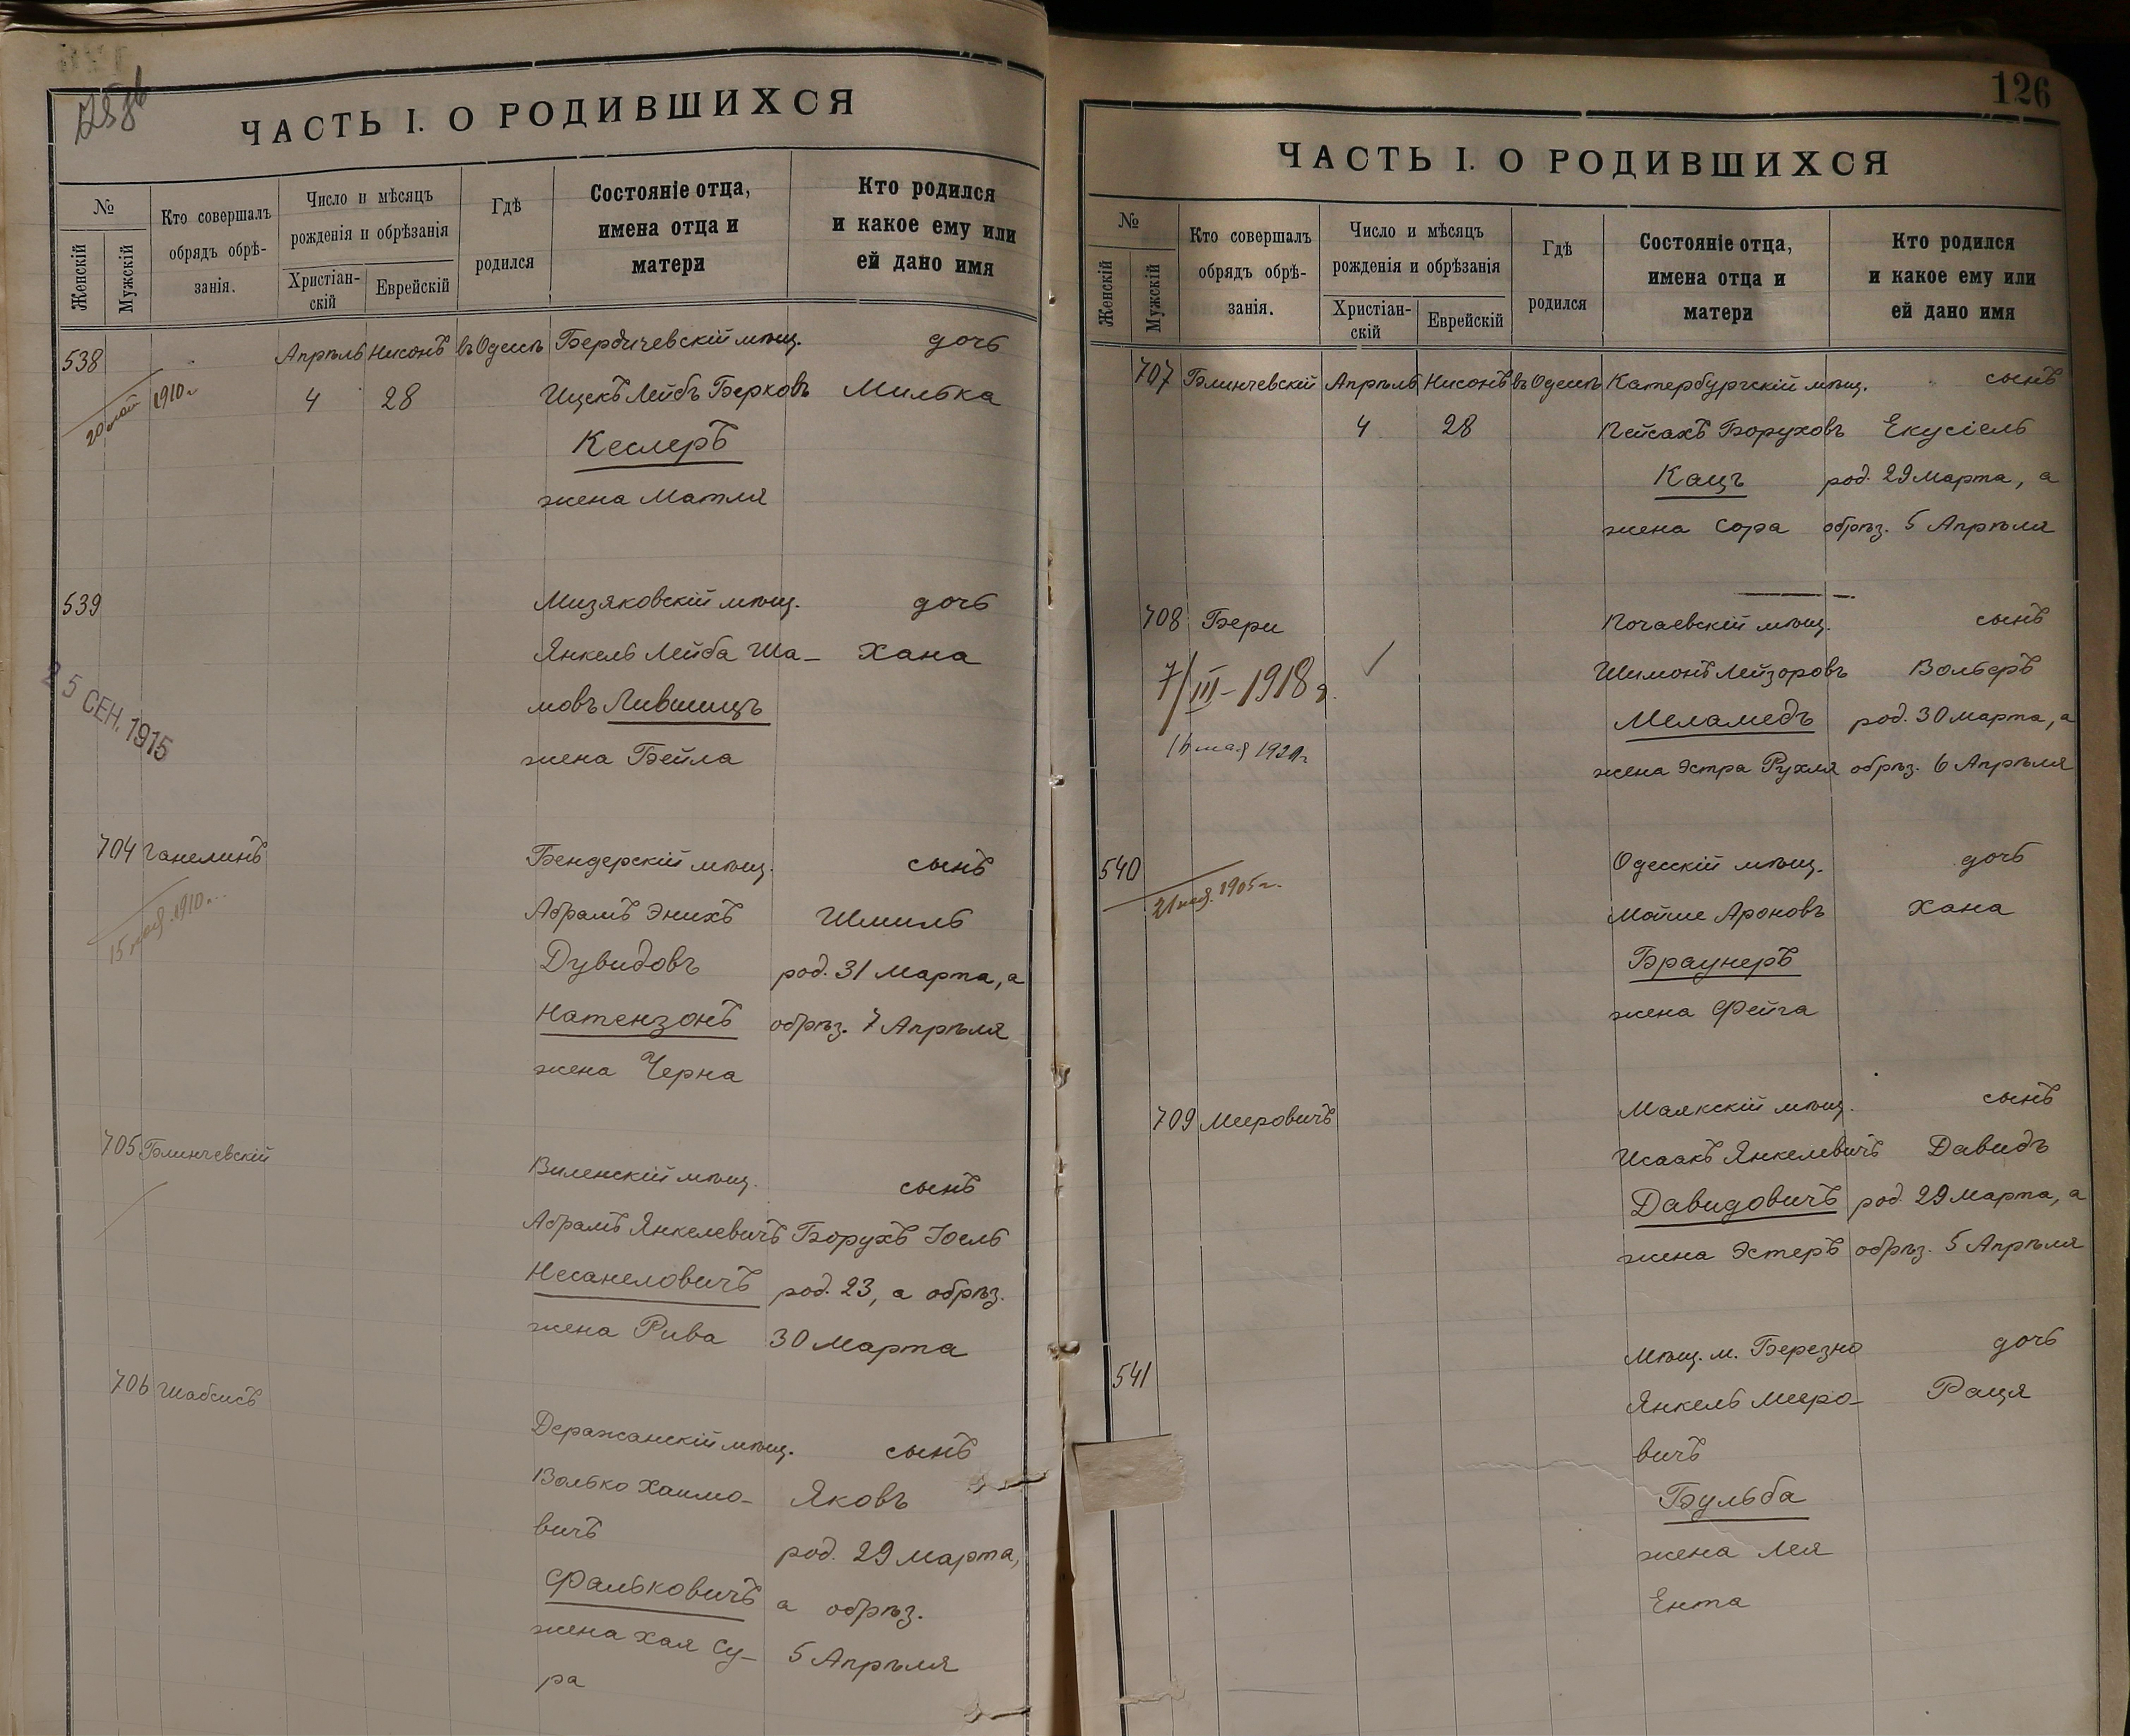 ЧАСТЬ I. О РОДИВШИХСЯ
№
Женскій
Мужскій
Кто совершалъ
обрядъ обрѣ-
занія.
Число и мѣсяцъ
рожденія и обрѣзанія
Христіан-
скій
Еврейскій
Гдѣ
родился
Состояніе отца,
имена отца и
матери
Кто родился
и какое ему или
ей дано имя
538 Апрѣль Нисонъ въ Одессѣ Бердичевскій мѣщ. дочь
20 май 1910 г. 4 28 Ицекъ Лейбъ Берковъ Милька
Кеслеръ
жена Матля
539 Мизяковскій мѣщ. дочь
Янкель Лейба Ша- Хана
мовъ Лившицъ
жена Бейла
25 СЕН. 1915
704 Ганелинъ Бендерскій мѣщ. сынъ
15 1910 г. Абрамъ Энихъ Шмиль
Дувидовъ род. 31 Марта, а
Натензонъ обрѣз. 7 Апрѣля
жена Черна
705 Блинчевскій Виленскій мѣщ. сынъ
Абрамъ Янкелевичъ Борухъ Іоель
Несанеловичъ род. 23, а обрѣз.
жена Рива 30 Марта
706 Шабсисъ Деражанскій мѣщ. сынъ
Волько Хаимо- Яковъ
вичъ род. 29 Марта,
Фальковичъ а обрѣз.
жена Хая Су- 5 Апрѣля
ра
126
ЧАСТЬ I. О РОДИВШИХСЯ
№
Женскій
Мужскій
Кто совершалъ
обрядъ обрѣ-
занія.
Число и мѣсяцъ
рожденія и обрѣзанія
Христіан-
скій
Еврейскій
Гдѣ
родился
Состояніе отца,
имена отца и
матери
Кто родился
и какое ему или
ей дано имя
707 Блинчевскій Апрѣль Нисонъ въ Одессѣ Катербургскій мѣщ. сынъ
4 28 Пейсахъ Боруховъ Екусіель
Кацъ род. 29 Марта, а
жена Сора обрѣз. 5 Апрѣля
708 Бери Почаевскій мѣщ. сынъ
7/III-1918 г. Шимонъ Лейзоровъ Вольеръ
Меламедъ род. 30 Марта, а
мая жена Эстра Рухля обрѣз. 6 Апрѣля
540 Одесскій мѣщ. дочь
21 1905 г. Мойше Ароновъ Хана
Браунеръ
жена Фейга
709 Мееровичъ Маякскій мѣщ. сынъ
Исаакъ Янкелевичъ Давидъ
Давидовичъ род. 29 Марта, а
жена Эстеръ обрѣз. 5 Апрѣля
541 Мѣщ. м. Березно дочь
Янкель Мееро- Раця
вичъ
Бульба
жена Лея
Ента